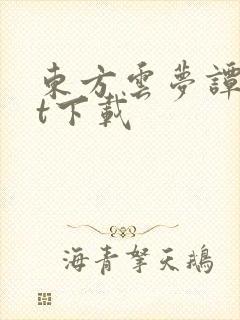 東方雲夢譚
t下載
海青拏天鵝